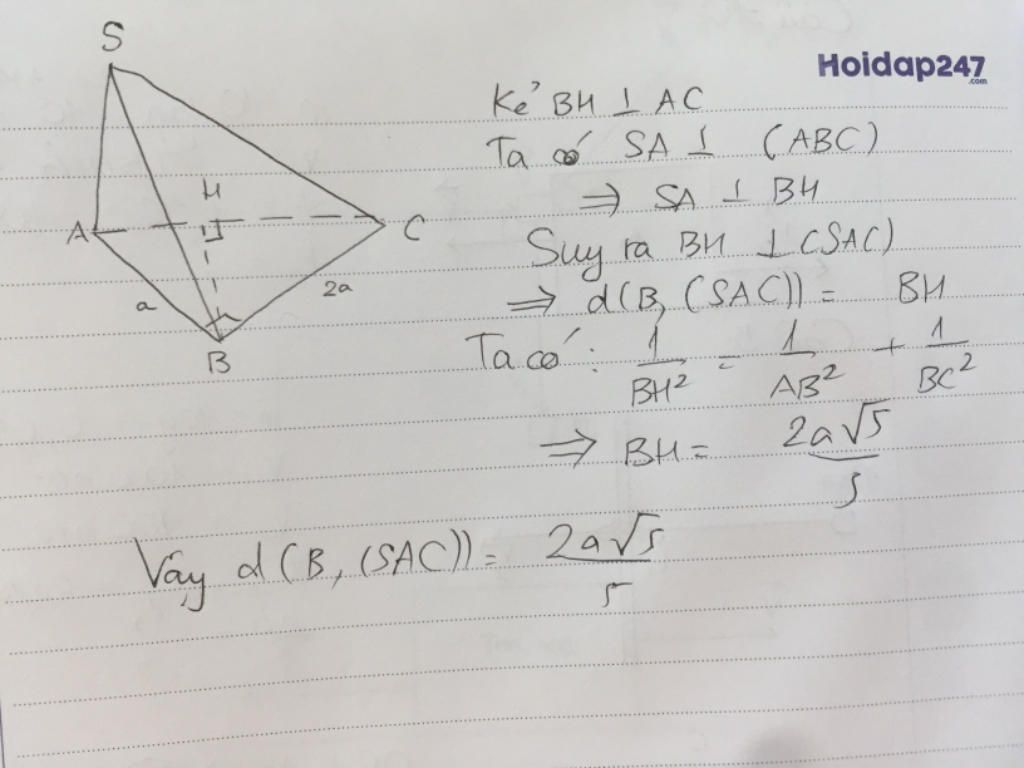 S
Hoidap247
.com
Kẻ BH ⊥ AC
Ta có SA ⊥ (ABC)
⇒ SA ⊥ BH
H
A
C
Suy ra BH ⊥ (SAC)
a
2a
⇒ d(B, (SAC)) = BH
B
Ta có: 1/BH² = 1/AB² + 1/BC²
⇒ BH = 2a√5/5
Vậy d(B, (SAC)) = 2a√5/5